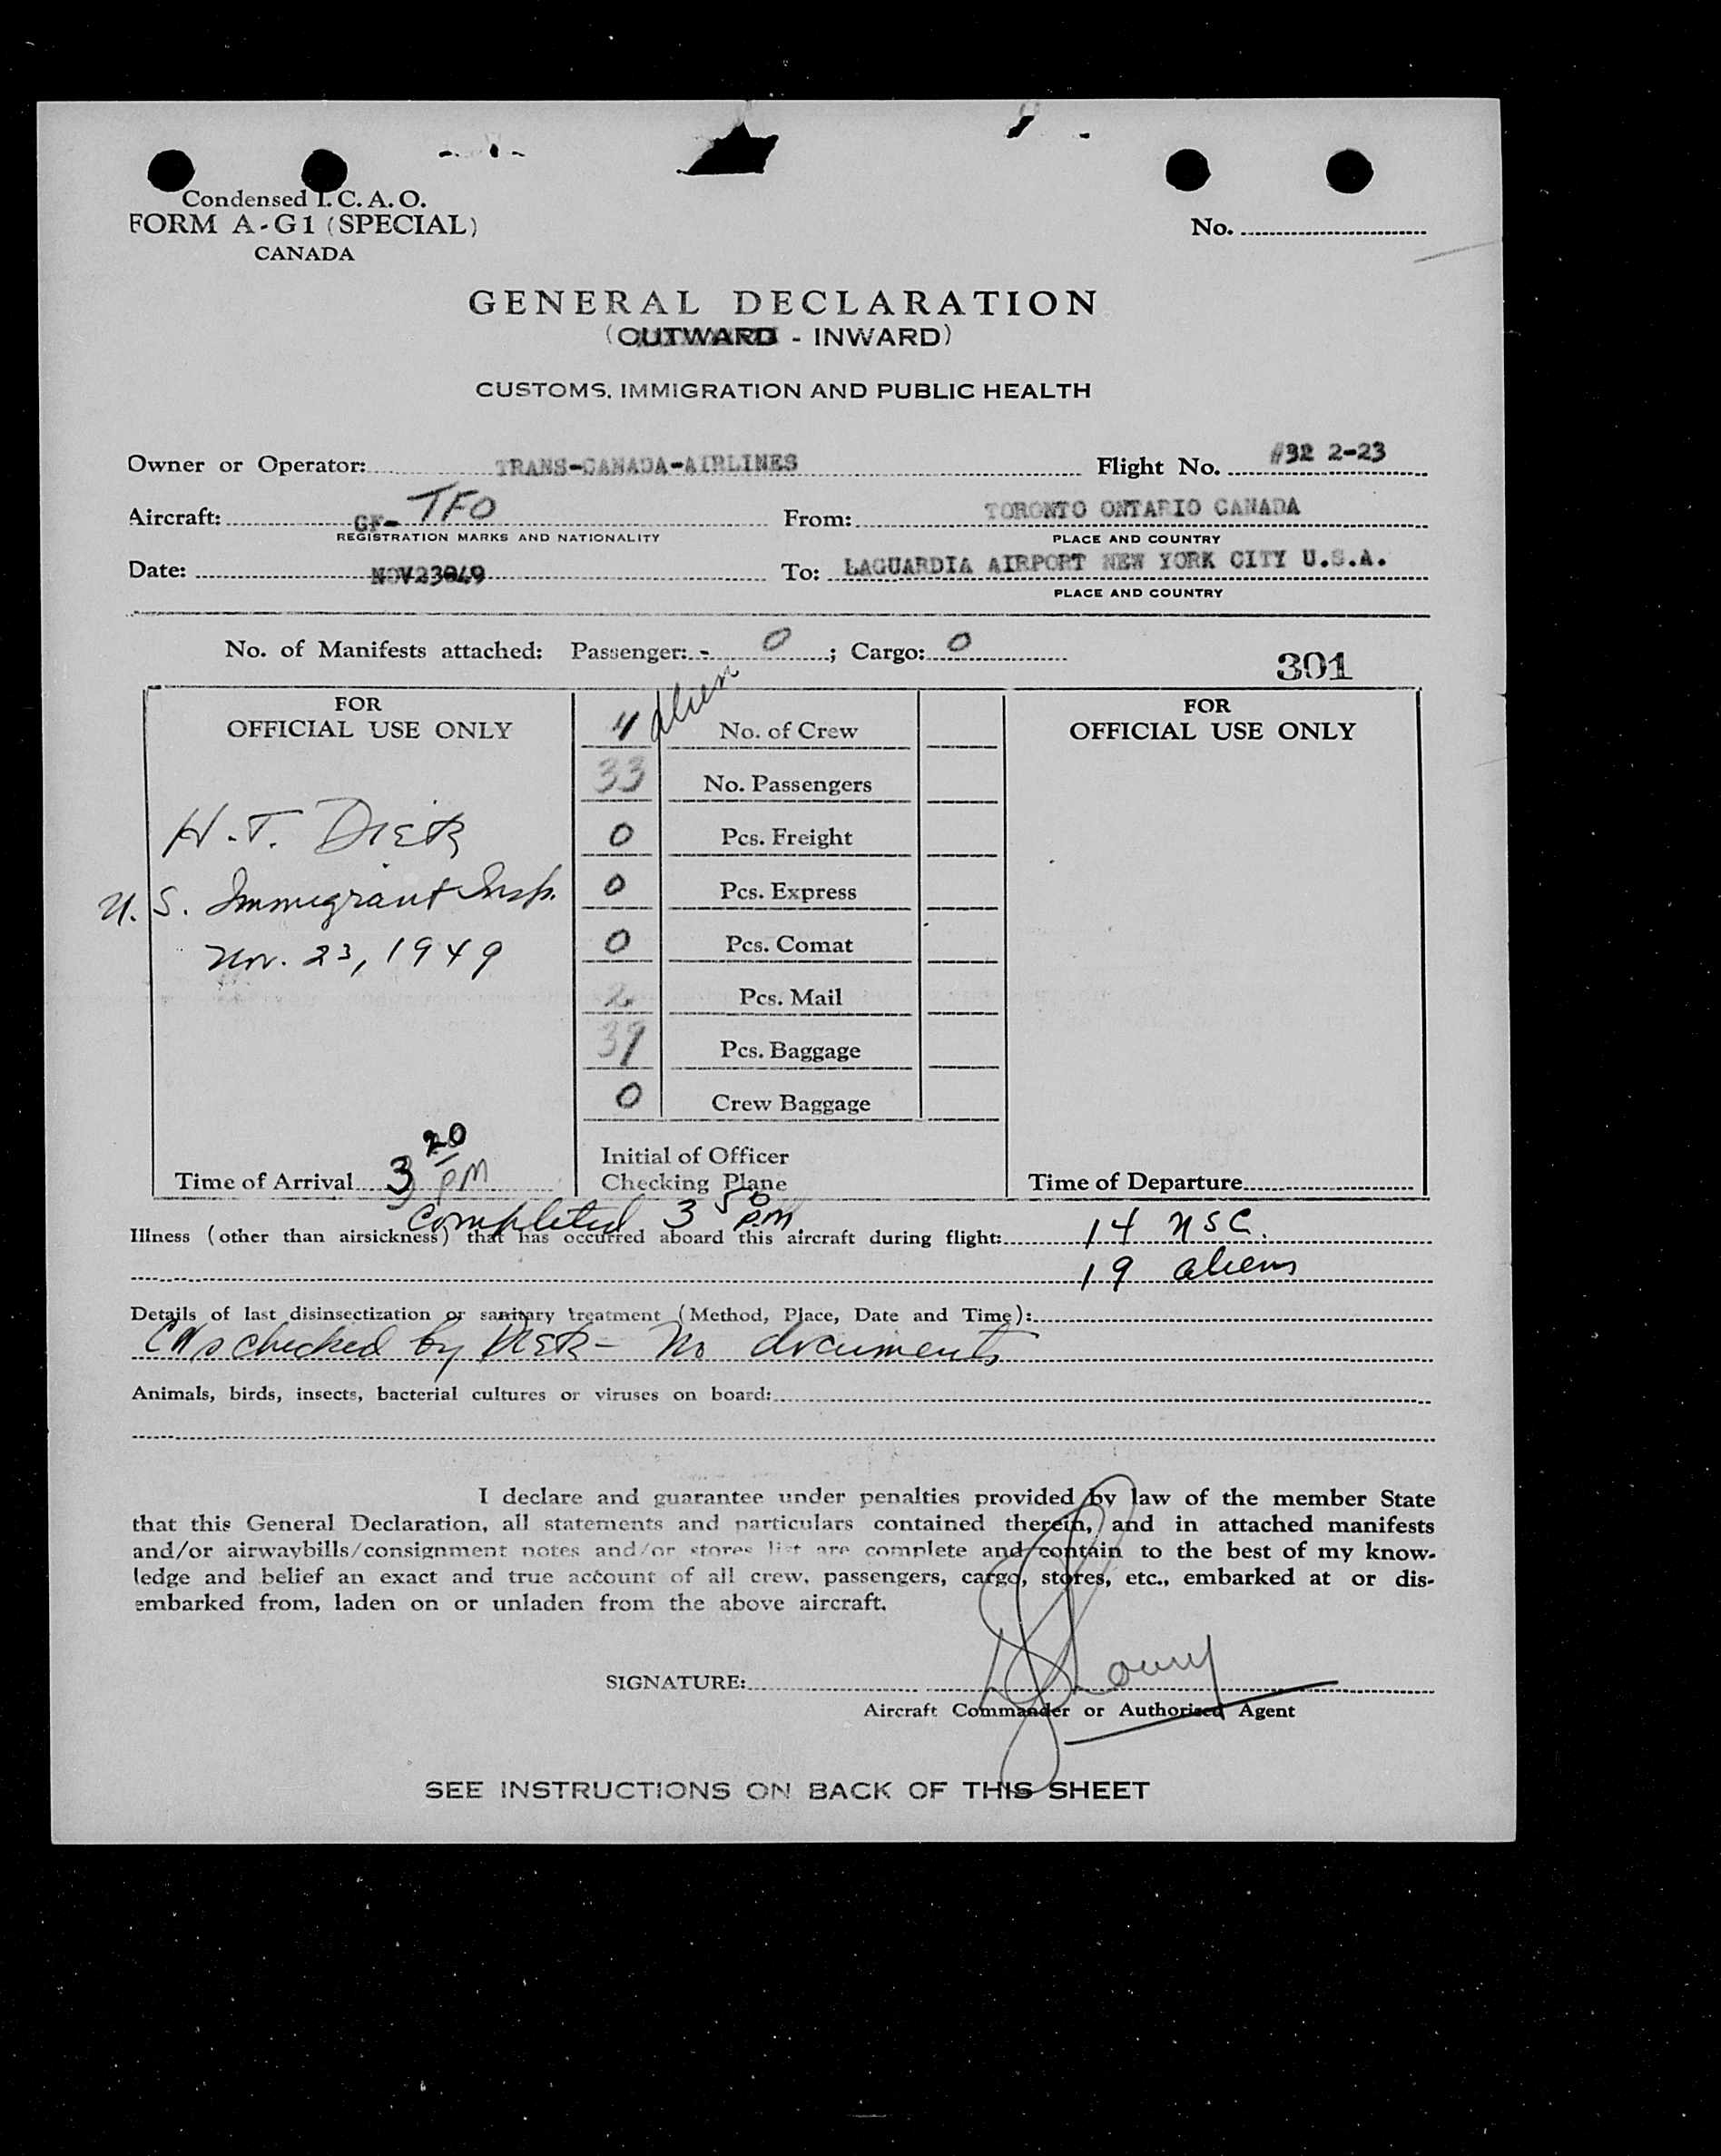 Condensed I. C. A. O.
FORM A-G1 (SPECIAL)
CANADA
No.
GENERAL DECLARATION
(OUTWARD - INWARD)
CUSTOMS, IMMIGRATION AND PUBLIC HEALTH
Owner or Operator: TRANS-CANADA-AIRLINES Flight No. #32 2-23
Aircraft: CF- TFO From: TORONTO ONTARIO CANADA
REGISTRATION MARKS AND NATIONALITY PLACE AND COUNTRY
Date: NOV23 49 To: LAGUARDIA AIRPORT NEW YORK CITY U.S.A.
PLACE AND COUNTRY
No. of Manifests attached: Passenger: - 0 ; Cargo: 0
301
FOR
OFFICIAL USE ONLY
H. T. Dietz
U. S. Immigrant Insp.
Nov. 23, 1949
Time of Arrival 3 20 PM
4 alien No. of Crew
33 No. Passengers
0 Pcs. Freight
0 Pcs. Express
0 Pcs. Comat
2 Pcs. Mail
39 Pcs. Baggage
0 Crew Baggage
Initial of Officer
Checking Plane
FOR
OFFICIAL USE ONLY
Time of Departure
Completed 3 50 PM
Illness (other than airsickness) that has occurred aboard this aircraft during flight: 14 USC.
19 aliens
Details of last disinsectization or sanitary treatment (Method, Place, Date and Time):
checked by Dietz - No documents
Animals, birds, insects, bacterial cultures or viruses on board:
I declare and guarantee under penalties provided by law of the member State
that this General Declaration, all statements and particulars contained therein, and in attached manifests
and/or airwaybills/consignment notes and/or stores list are complete and contain to the best of my know-
ledge and belief an exact and true account of all crew, passengers, cargo, stores, etc., embarked at or dis-
embarked from, laden on or unladen from the above aircraft.
SIGNATURE:
Aircraft Commander or Authorized Agent
SEE INSTRUCTIONS ON BACK OF THIS SHEET